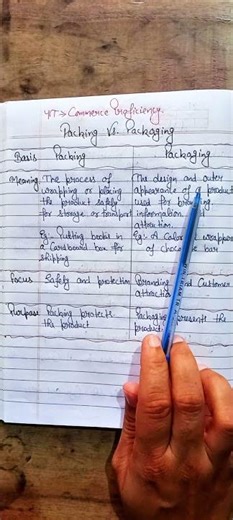 YT → Commerce Proficiency
Packing Vs. Packaging
Basis Packing Packaging
Meaning The process of
wrapping or placing
the product safely
for storage or transport
Eg:- Putting books in
a Cardboard box for
shipping
The design and outer
appearance of a product
used for
information
attraction.
Eg:- A Color wrapper
of chocolate bar
Focus Safety and protection
Branding and Customer
attraction
Purpose Packing protects
the product
Packaging presents the
product